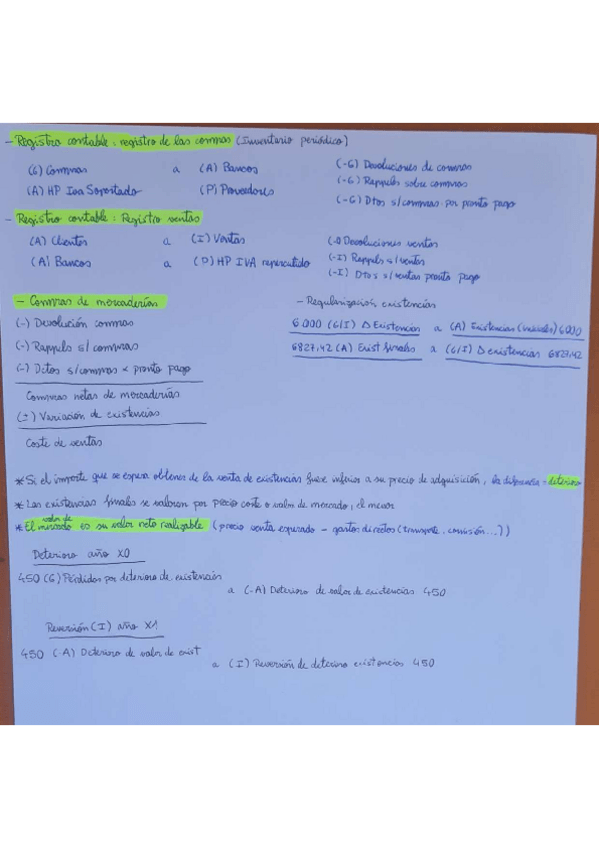 - Registro contable: registro de las compras (Inventario periódico)
(G) Compras a (A) Bancos (-G) Devoluciones de compras
(A) HP Iva Soportado (P) Proveedores (-G) Rappels sobre compras
(-G) Dtos s/compras por pronto pago
- Registro contable: Registro ventas
(A) Clientes a (I) Ventas (-I) Devoluciones ventas
(A) Bancos a (P) HP IVA repercutido (-I) Rappels s/ventas
(-I) Dtos s/ventas pronto pago
- Compras de mercaderías
(-) Devolución compras
(-) Rappels s/ compras
(-) Dctos s/compras x pronto pago
Compras netas de mercaderías
(±) Variación de existencias
Coste de ventas
- Regularización existencias
6.000 (G/I) Δ Existencias a (A) Existencias (iniciales) 6000
6827,42 (A) Exist finales a (G/I) Δ existencias 6827,42
* Si el importe que se espera obtener de la venta de existencias fuese inferior a su precio de adquisición, la diferencia = deterioro
* Las existencias finales se valoran por precio coste o valor de mercado, el menor
* El valor de mercado es su valor neto realizable (precio venta esperado - gastos directos (transporte, comisión...))
Deterioro año X0
450 (G) Pérdidas por deterioro de existencias
a (-A) Deterioro de valor de existencias 450
Reversión (I) año X1
450 (-A) Deterioro de valor de exist
a (I) Reversión de deterioro existencias 450